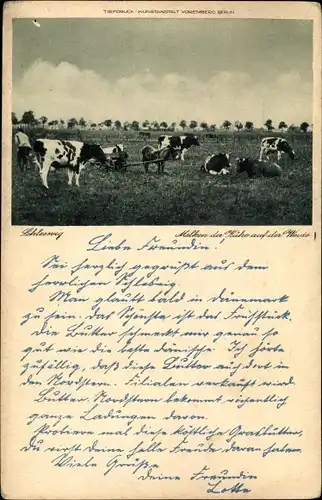 TIEFDRUCK: KUNSTANSTALT VOREMBERG BERLIN
Schleswig
Melken der Kühe auf der Weide
Liebe Freundin!
Sei herzlich gegrüßt aus dem
herrlichen Schleswig.
Man glaubt bald in Dänemark
zu sein. Das Schönste ist das Frühstück.
Die Butter schmeckt mir genau so
gut wie die beste dänische. Ich hörte
zufällig, daß diese Butter auch dort in
den Nordstern-Filialen verkauft wird.
Butter-Nordstern bekommt wöchentlich
ganze Ladungen davon.
Probiere mal diese köstliche Grasbutter,
Du wirst deine helle Freude daran haben.
Viele Grüße
deine Freundin
Lotte